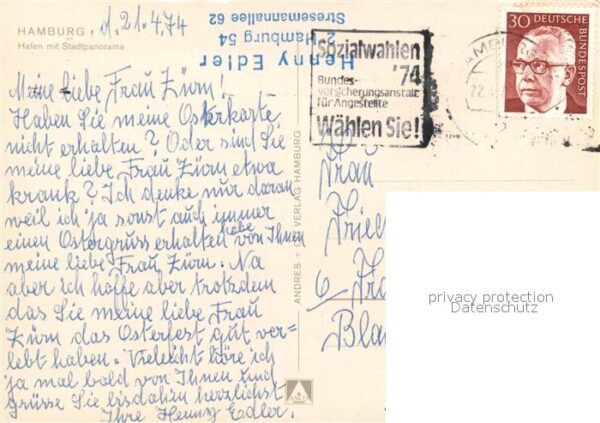 HAMBURG, d. 21.4.74
Hafen mit Stadtpanorama
Meine liebe Frau Zürn!
Haben Sie meine Osterkarte
nicht erhalten? Oder sind Sie
meine liebe Frau Zürn etwa
krank? Ich denke nur daran
weil ich ja sonst auch immer
einen Ostergruss erhalten habe von Ihnen
meine liebe Frau Zürn. Na
aber ich hoffe aber trotzdem
das Sie meine liebe Frau
Zürn das Osterfest gut ver=
lebt haben. Vieleicht höre ich
ja mal bald von Ihnen und
grüsse Sie bisdahin herzlichst
Ihre Henny Edler.
Henny Edler
2 Hamburg 54
Stresemannallee 62
ANDRES + CO VERLAG HAMBURG
Sozialwahlen
'74
Bundes-
versicherungsanstalt
für Angestellte
Wählen Sie!
30 DEUTSCHE
BUNDESPOST
HAMBURG
22.
Frau
6
privacy protection
Datenschutz